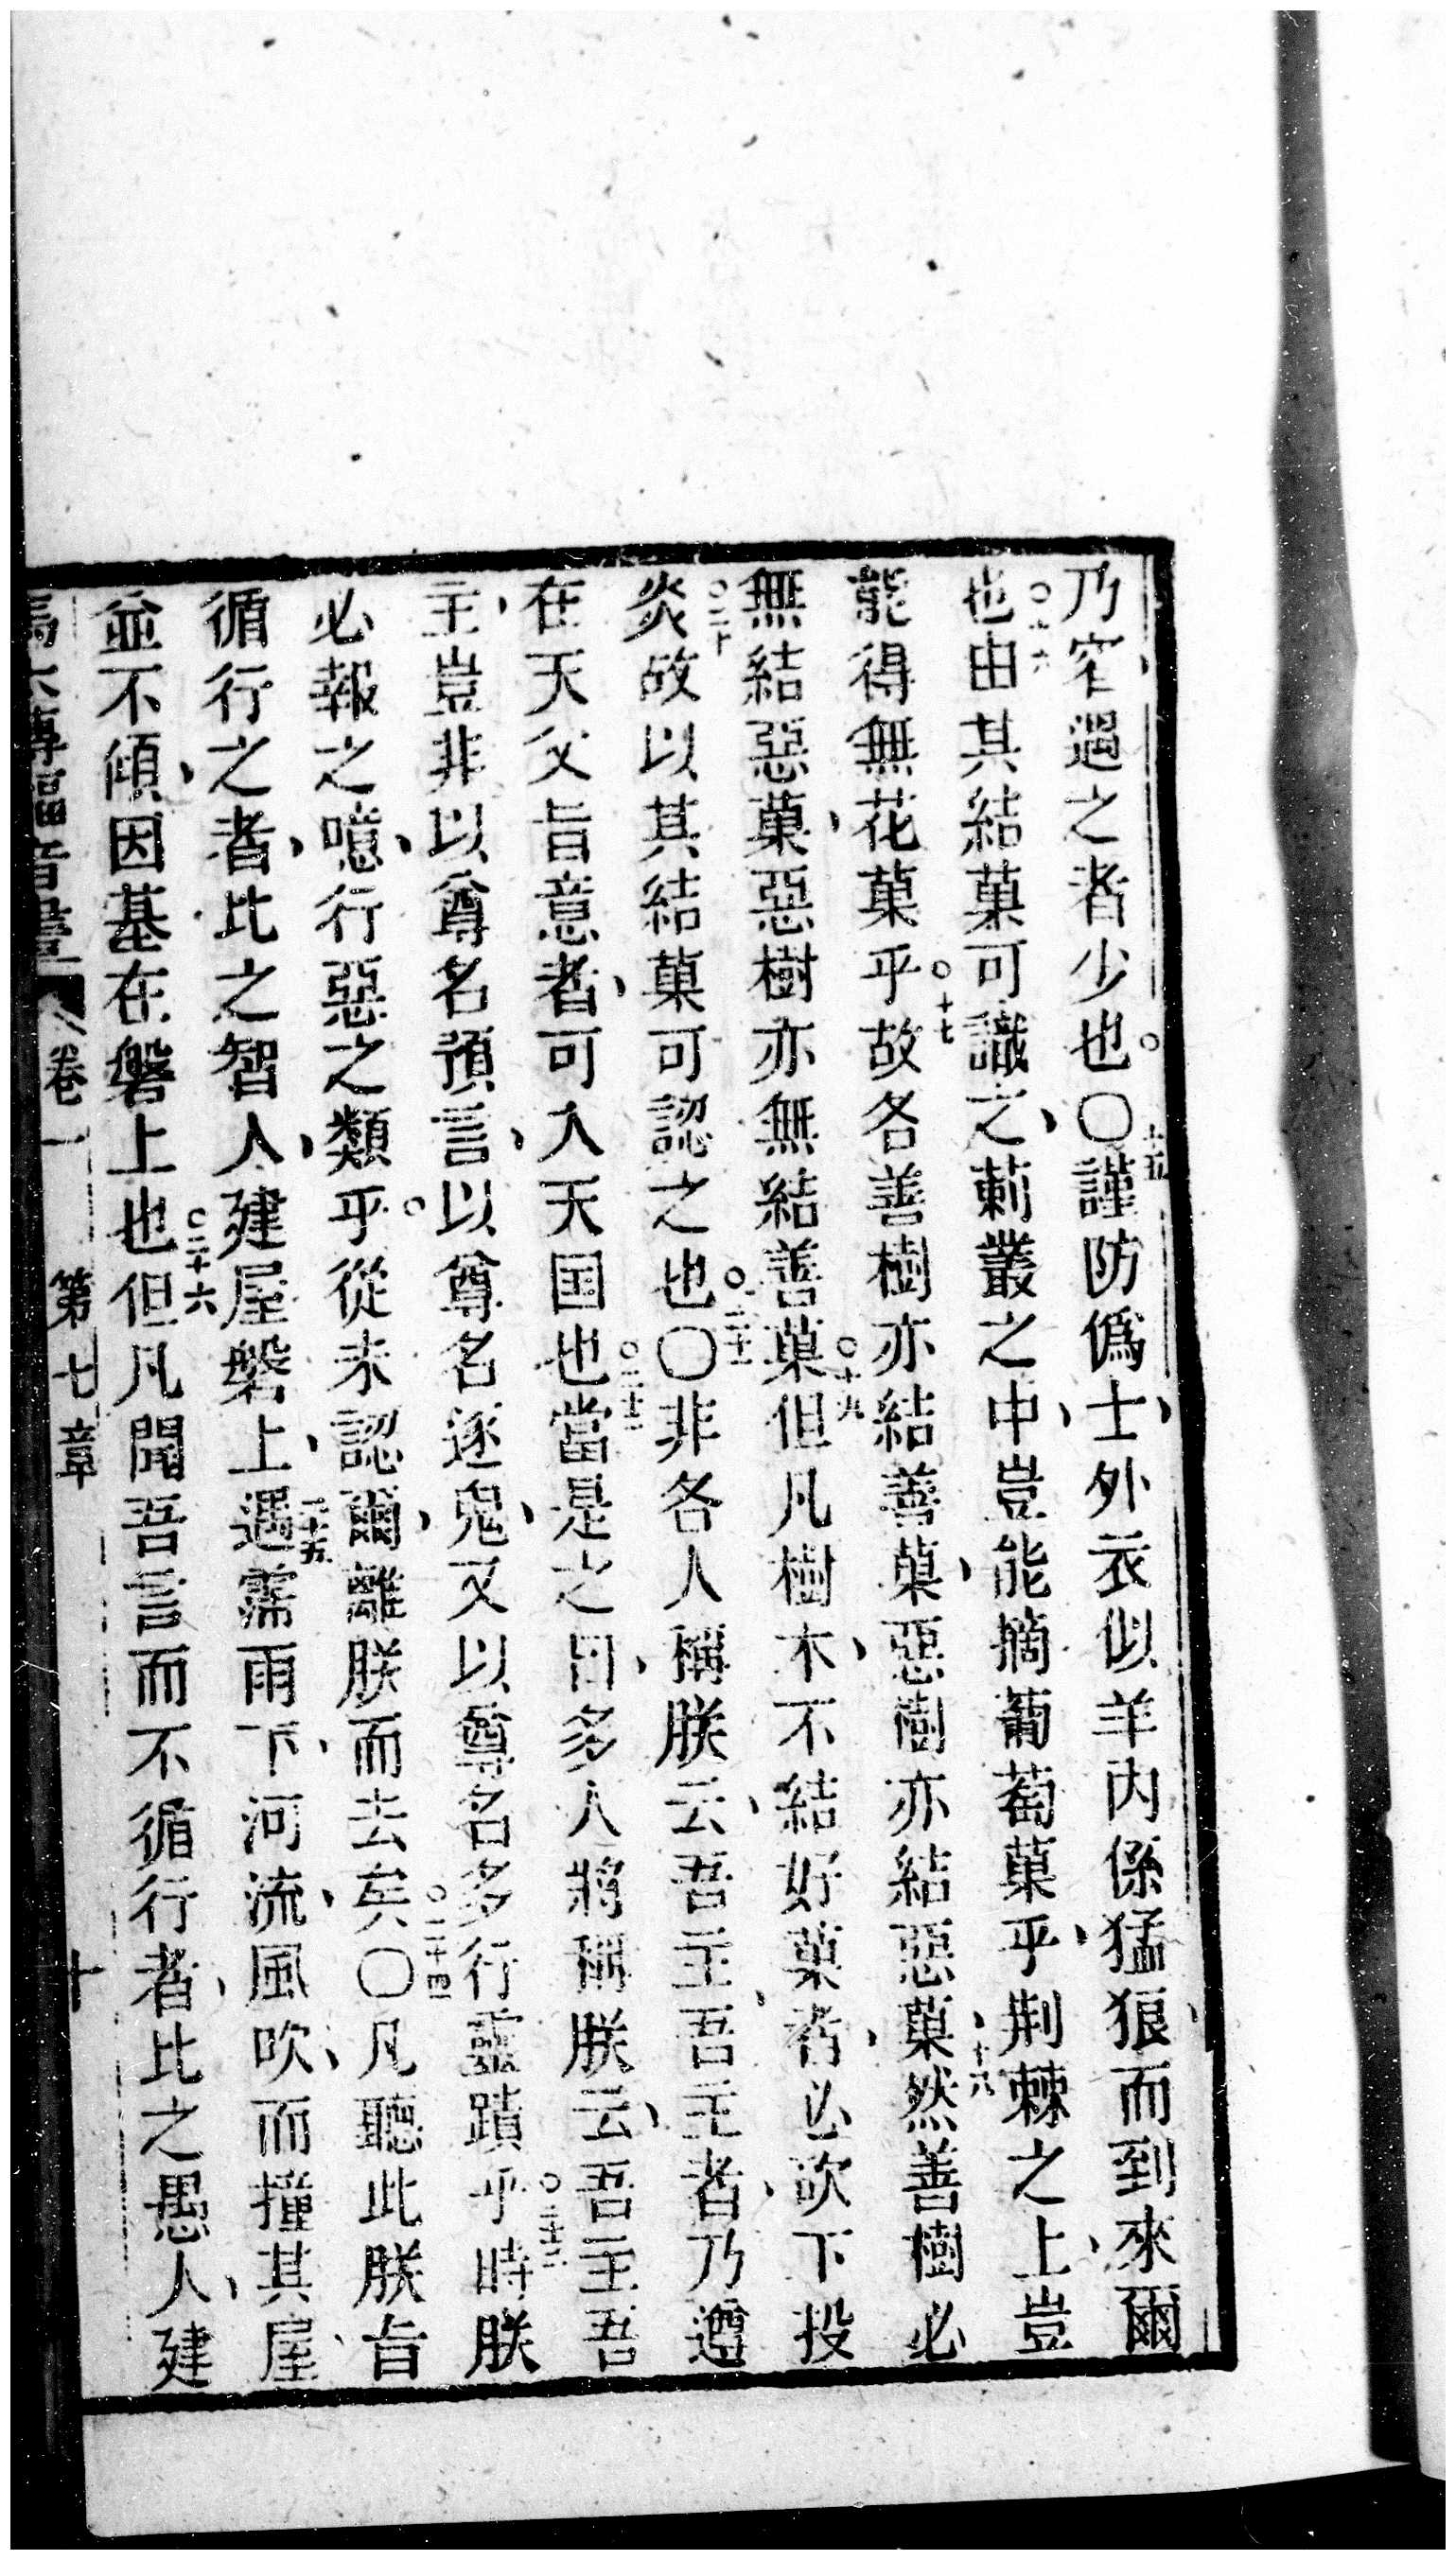 乃窄、遇之者少也。〇十五謹防僞士、外衣似羊内係猛狼、而到來爾
也。十六由其結菓可識之、莿叢之中、豈能摘葡萄菓乎、荆棘之上、豈
能得無花菓乎。十七故各善樹亦結善菓、惡樹亦結惡菓、十八然善樹必
無結惡菓、惡樹亦無結善菓。十九但凡樹木、不結好菓者、必砍下投
炎。二十故以其結菓可認之也。〇二十一非各人稱朕云、吾主、吾主者、乃遵
在天父旨意者、可入天国也。二十二當是之日、多人將稱朕云、吾主吾
主、豈非以尊名預言、以尊名逐鬼、又以尊名多行靈蹟乎。二十三時朕
必報之噫、行惡之類乎。從未認爾、離朕而去矣。〇二十四凡聽此朕旨、
循行之者、比之智人、建屋磐上、二十五遇霈雨下、河流、風吹、而撞其屋
並不傾、因基在磐上也。二十六但凡聞吾言而不循行者、比之愚人、建
馬太傳福音書 卷一 第七章 十